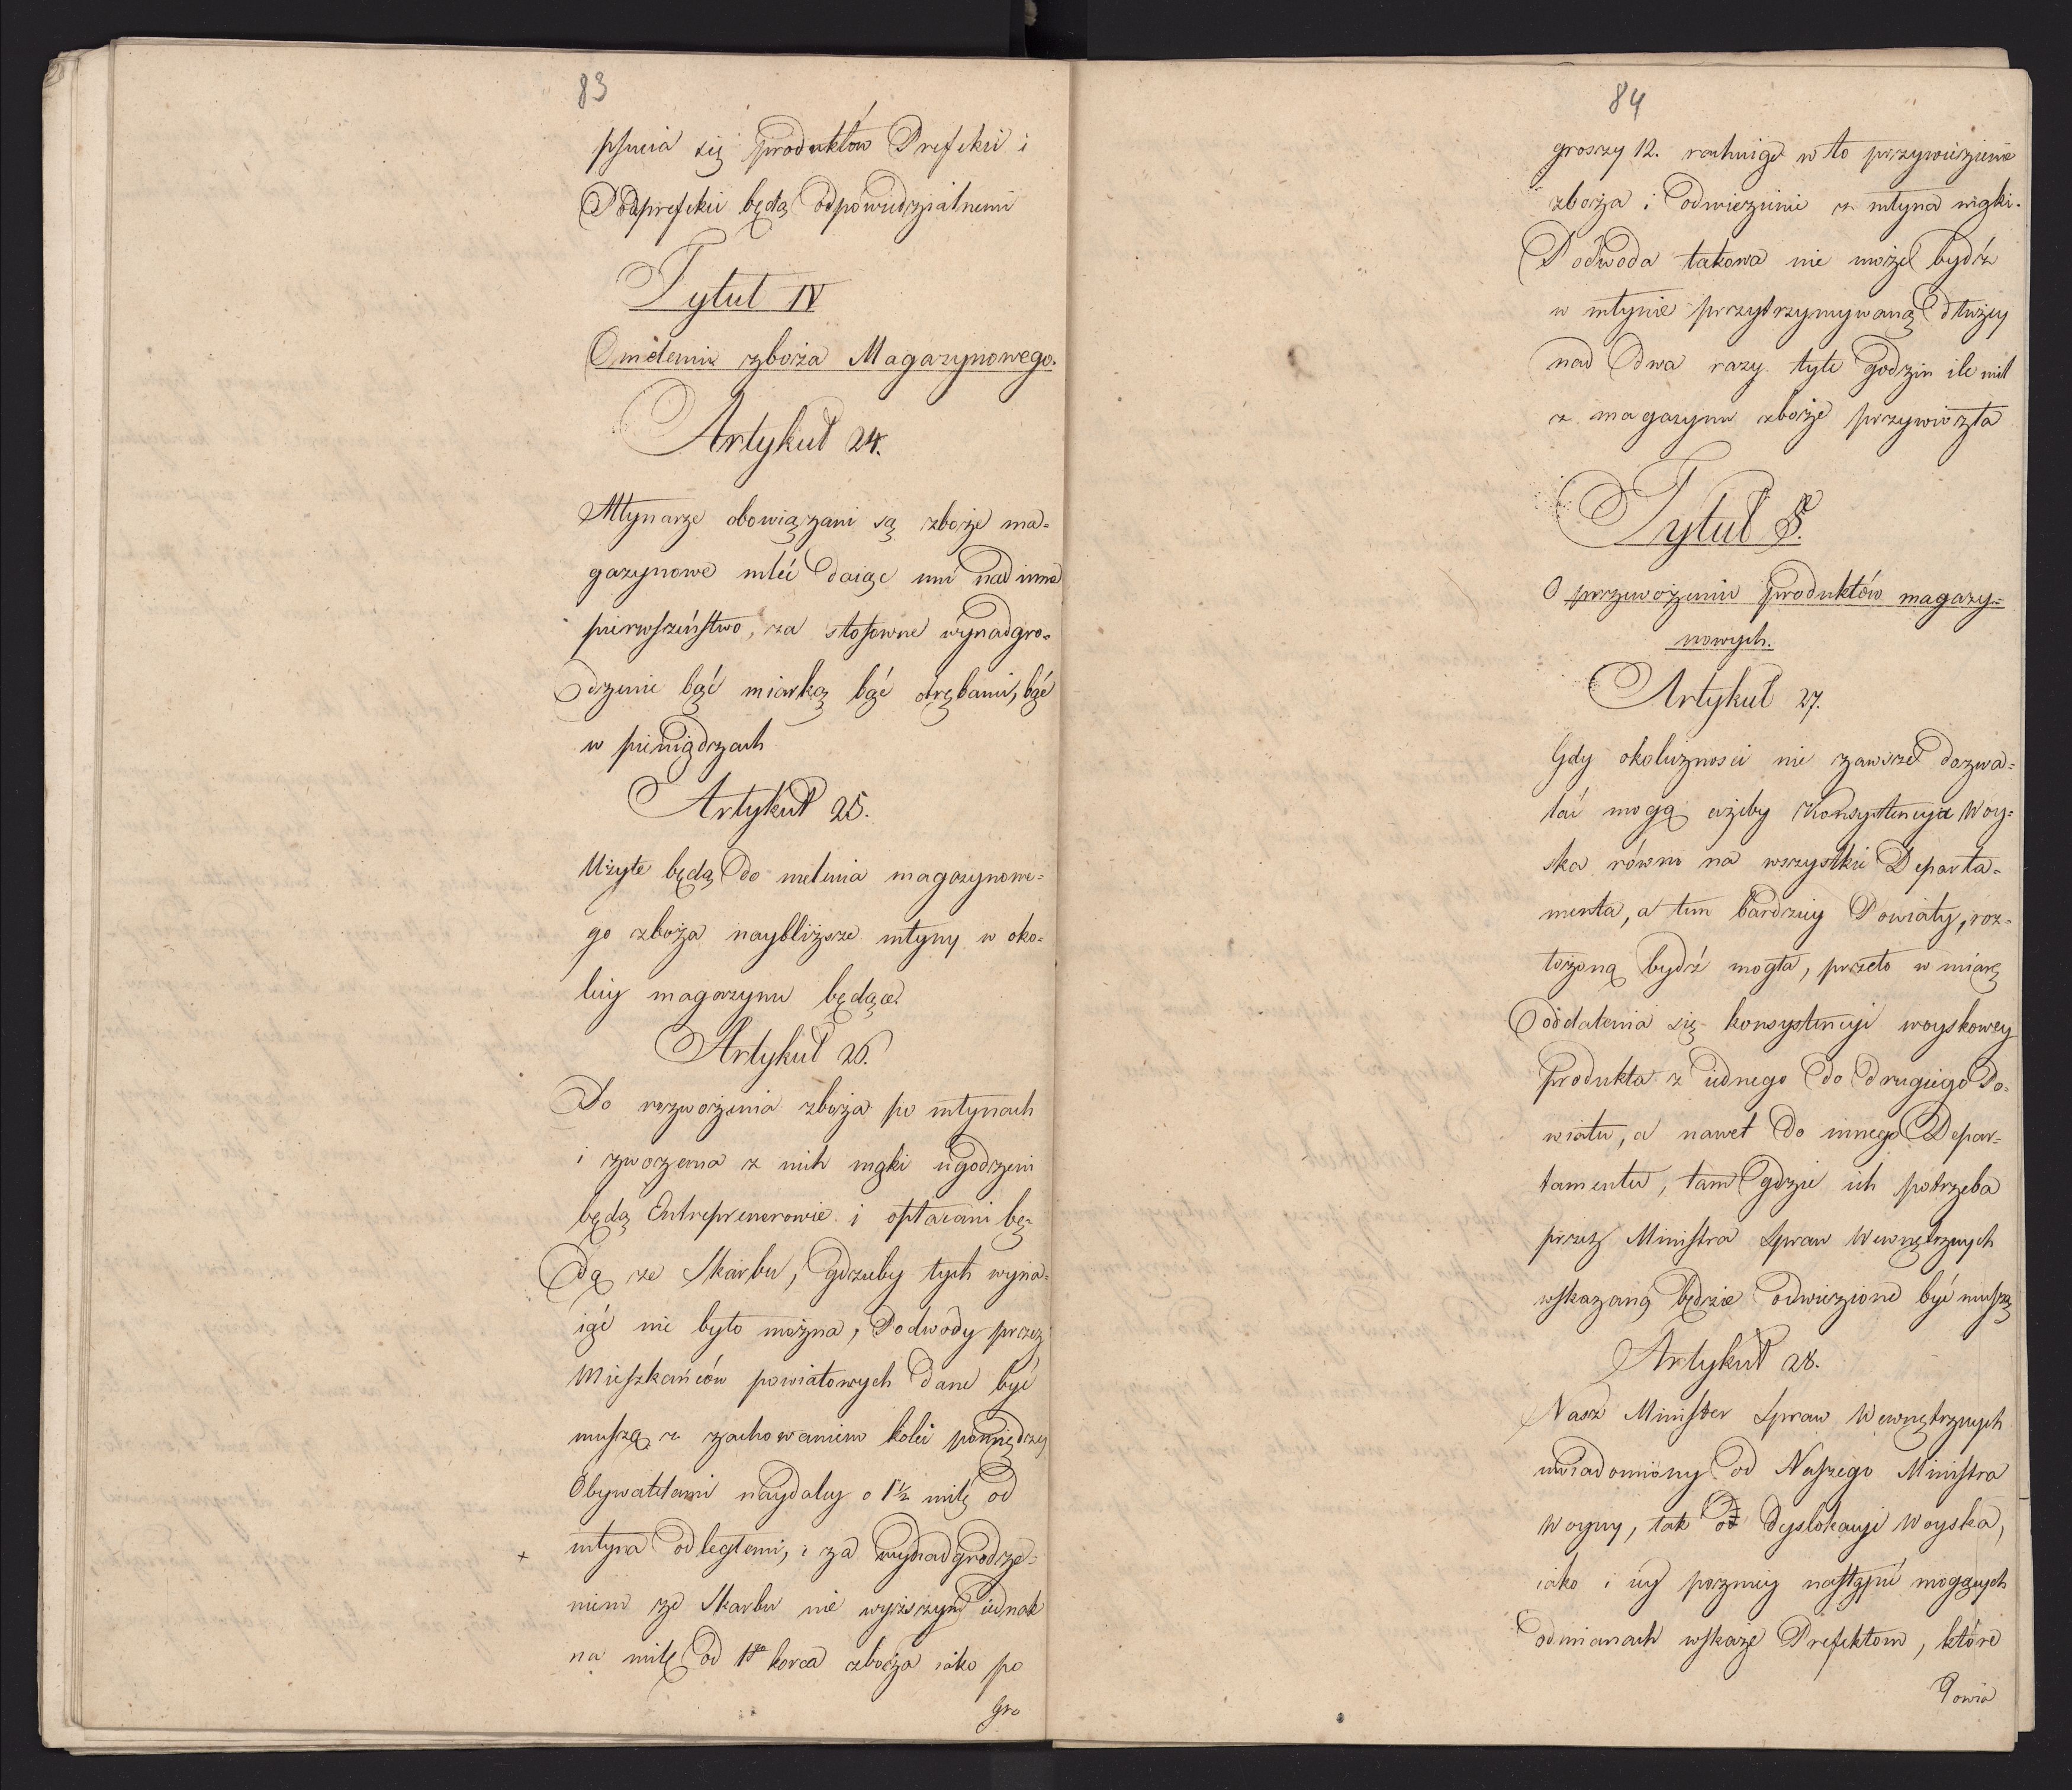 83
psucia się produktów Prefekci i
Podprefekci będą odpowiedzialnemi
Tytuł IV
O mieleniu zboża Magazynowego.
Artykuł 24.
Młynarze obowiązani są zboże ma-
gazynowe mleć daiąc mu nad inne
pierwszeństwo, za stosowne wynadgro-
dzenie bąć miarką bąć otrębami, bąć
w pieniądzach
Artykuł 25.
Użyte będą do mielenia magazynowe-
go zboża naybliższe młyny w oko-
licy magazynu będące.
Artykuł 26.
Do rozwożenia zboża po młynach
i zwożenia z nich mąki ugodzeni
będą Entreprenerowie i opłacani bę-
dą ze Skarbu, gdzieby tych wyna-
iąć nie było można, Podwody przez
Mieszkańców powiatowych dane być
muszą z zachowaniem kolei pomiędzy
Obywatelami naydaley o 1½ milę od
młyna odległemi, i za wynadgrodze-
niem ze Skarbu nie wyższym iednak
na milę od 1go korca zboża iako po
gro
84
groszy 12. rachuiąc w to przywiezienie
zboża i odwiezienie z młyna mąki.
Podwoda takowa nie może bydź
w młynie przytrzymywaną dłużey
nad dwa razy tyle godzin ile mil
z magazynu zboże przywiozła
Tytuł 5.
O przewożeniu produktów magazy-
nowych.
Artykuł 27.
Gdy okoliczności nie zawsze dozwa-
lać mogą ażeby Konsystencya Woy-
ska równo na wszystkie Departa-
menta, a tem bardziey Powiaty, roz-
łożoną bydź mogła, przeto w miarę
oddalenia się konsystencyi woyskowey
Produkta z iednego do drugiego Po-
wiatu, a nawet do innego Depar-
tamentu, tam gdzie ich potrzeba
przez Ministra Spraw Wewnętrznych
wskazaną będzie odwiezione być muszą
Artykuł 28.
Nasz Minister Spraw Wewnętrznych
uwiadomiony od Naszego Ministra
Woyny, tak od dyslokacyi Woyska,
iako i iey pozniey nastąpić mogących
odmianach wskaże Prefektom, które
Powia